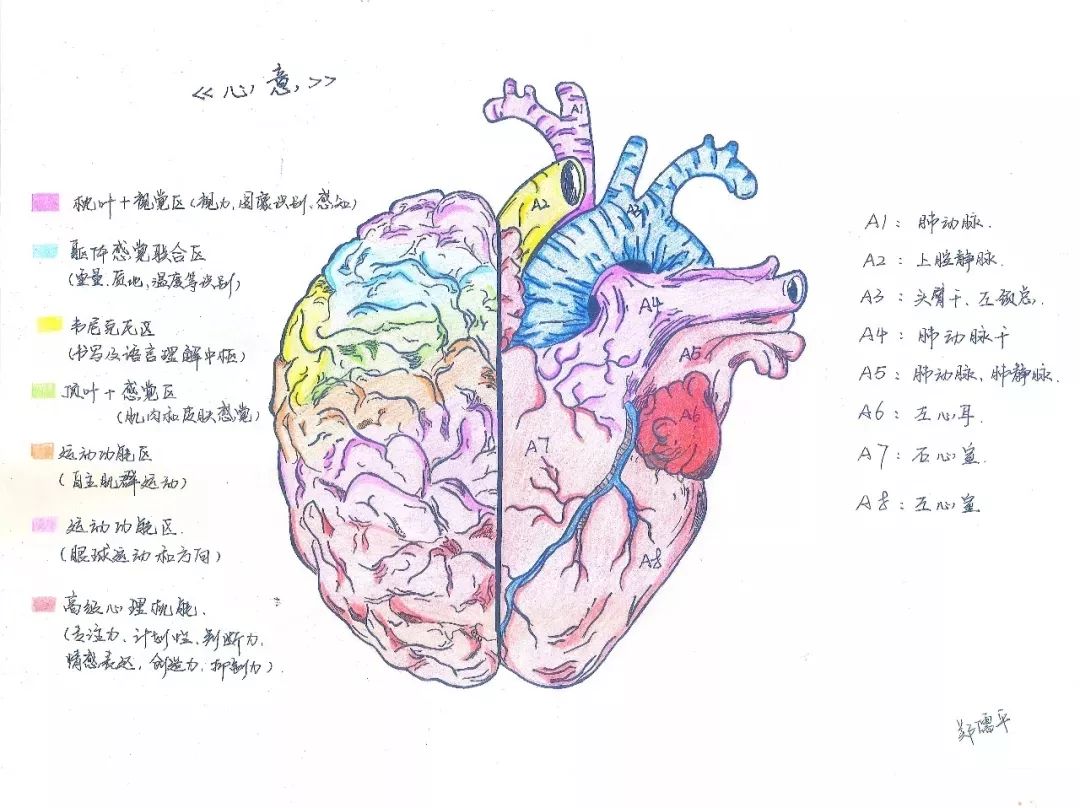 <<心意>>
枕叶+视觉区(视力、图像识别、感知)
躯体感觉联合区
(重量、质地、温度等识别)
韦尼克氏区
(书写及语言理解中枢)
顶叶+感觉区
(肌肉和皮肤感觉)
运动功能区
(自主肌群运动)
运动功能区.
(眼球运动和方向)
高级心理机能.
(专注力、计划性、判断力、
情感表达,创造力、抑制力).
A1
A2
A3
A4
A5
A6
A7
A8
A1:肺动脉.
A2:上腔静脉.
A3:头臂干、左颈总.
A4:肺动脉干
A5:肺动脉、肺静脉.
A6:左心耳.
A7:右心室.
A8:左心室